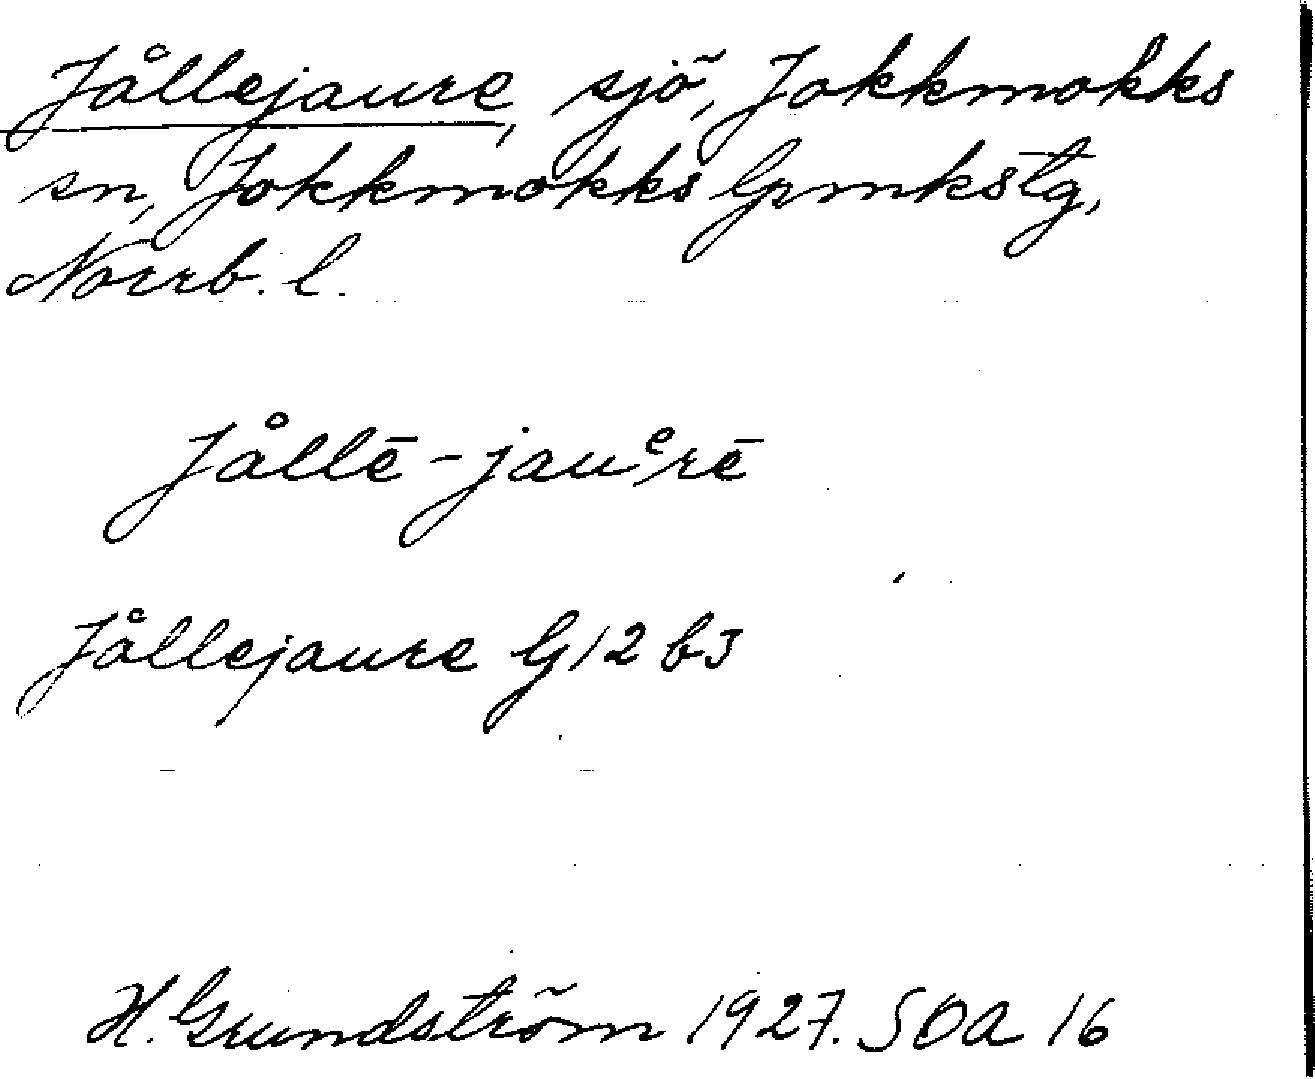 Jållejaure, sjö, Jokkmokks
sn, Jokkmokks lpmkstg,
Norrb. l.
Jållē-jauᵉ̥rē
Jållejaure G12 b3
H. Grundström 1927. SOA 16